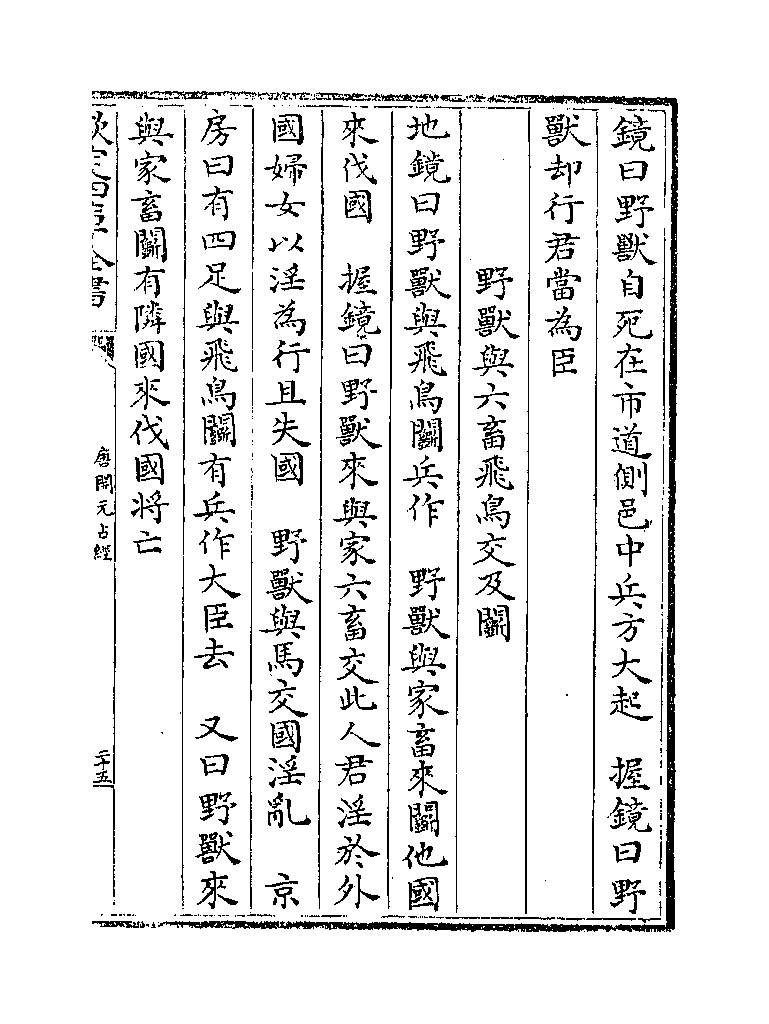 鏡曰野獸自死在市道側邑中兵方大起　握鏡曰野
獸却行君當為臣
野獸與六畜飛鳥交及鬭
地鏡曰野獸與飛鳥鬭兵作　野獸與家畜來鬭他國
來伐國　握鏡曰野獸來與家六畜交此人君淫於外
國婦女以淫為行且失國　野獸與馬交國淫亂　京
房曰有四足與飛鳥鬭有兵作大臣去　又曰野獸來
與家畜鬭有隣國來伐國將亡
欽定四庫全書
唐開元占經
二十五